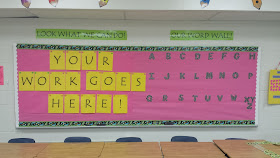 LOOK WHAT
WORD WALL
YOUR
WORK GOES
HERE!
A B C D E F G H
I J K L M N O P
Q R S T U V W X Y Z